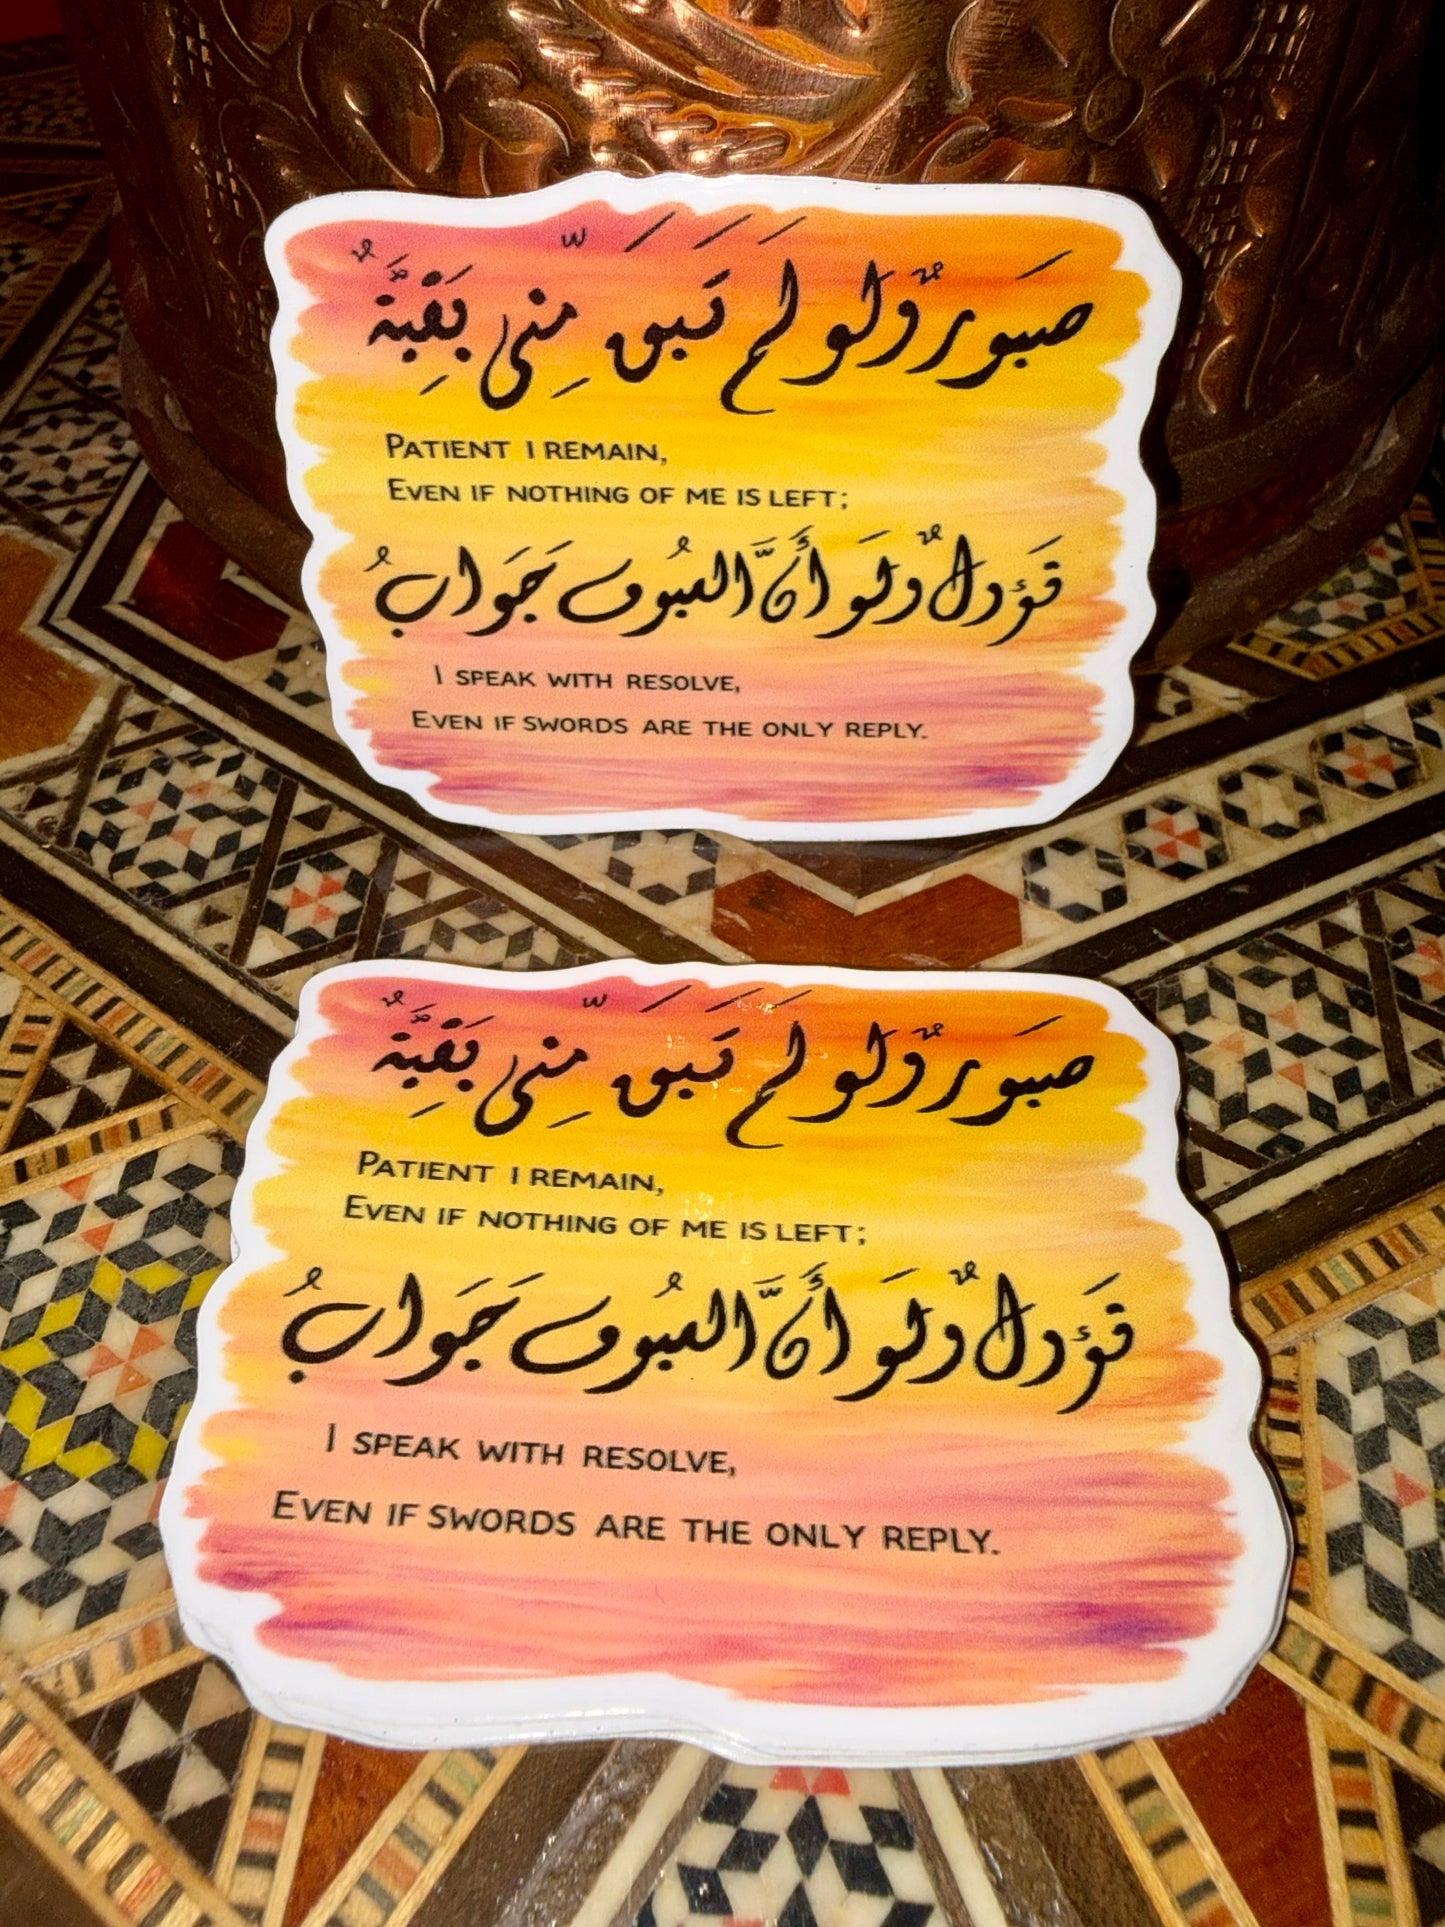 صَبورٌ ولو لَم تَبقَ مِنّي بَقِيَّةٌ
PATIENT I REMAIN,
EVEN IF NOTHING OF ME IS LEFT;
قَؤولٌ ولَو أَنَّ السُيوف جَوَابُ
I SPEAK WITH RESOLVE,
EVEN IF SWORDS ARE THE ONLY REPLY.
صَبورٌ ولو لَم تَبقَ مِنّي بَقِيَّةٌ
PATIENT I REMAIN,
EVEN IF NOTHING OF ME IS LEFT;
قَؤولٌ ولَو أَنَّ السُيوف جَوَابُ
I SPEAK WITH RESOLVE,
EVEN IF SWORDS ARE THE ONLY REPLY.